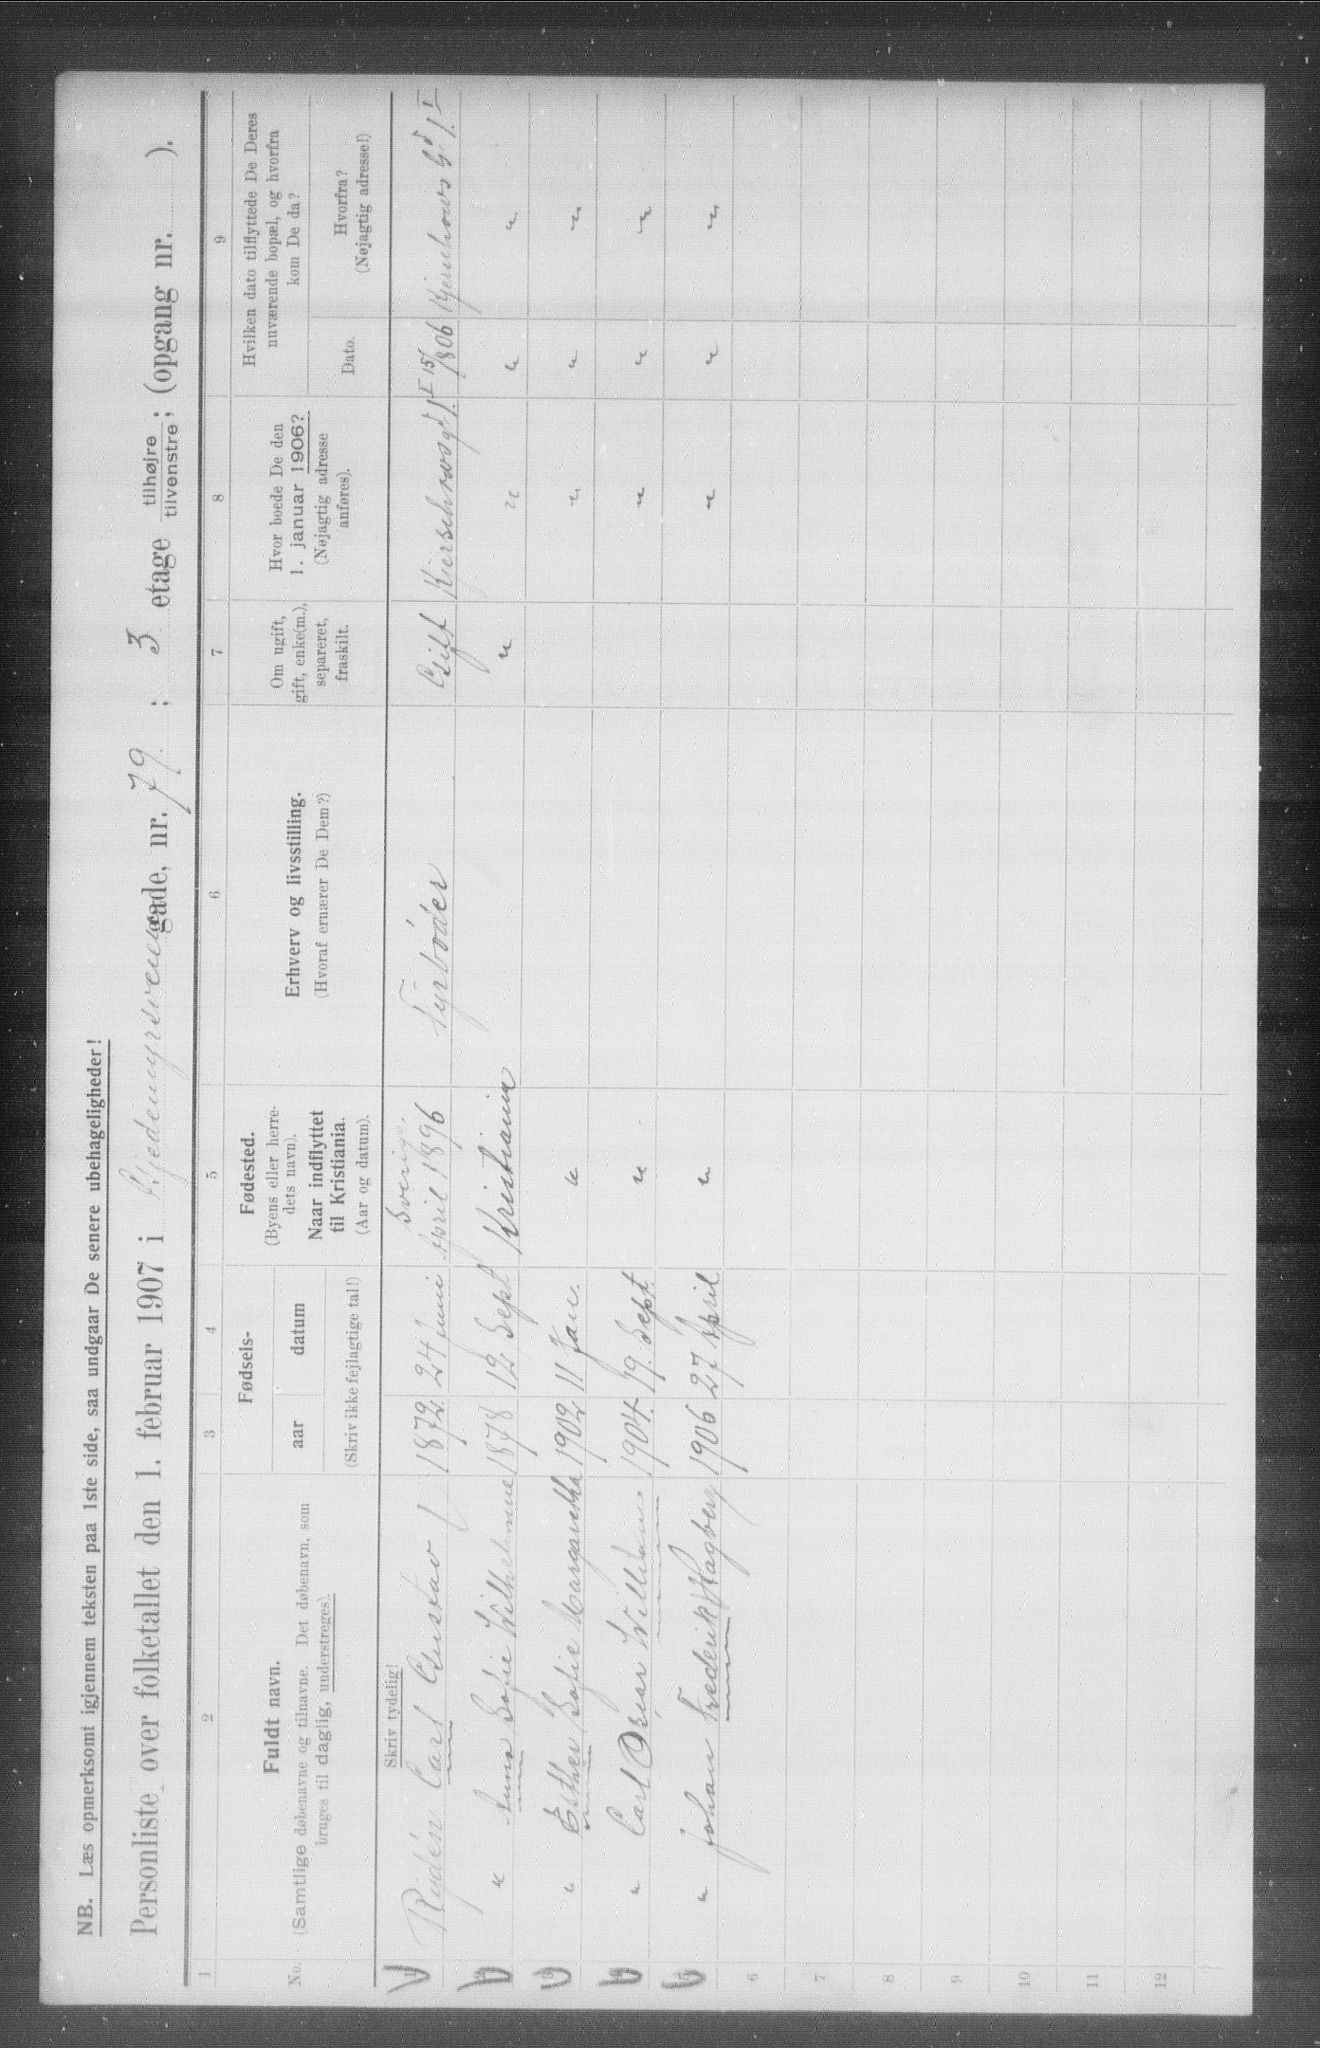 NB. Læs opmerksomt igjennem teksten paa 1ste side, saa undgaar De senere ubehageligheder!
Personliste over folketallet den 1. februar 1907 i gade, nr. 79. ; 3 etage tilhøjre tilvenstre; (opgang nr. ).
1 2 3 4 5 6 7 8 9
No.
Fuldt navn.
(Samtlige døbenavne og tilnavne. Det døbenavn, som
bruges til daglig, understreges).
Fødsels-
aar datum
(Skriv ikke fejlagtige tal!)
Fødested.
(Byens eller herre-
dets navn).
Naar indflyttet
til Kristiania.
(Aar og datum).
Erhverv og livsstilling.
(Hvoraf ernærer De Dem?)
Om ugift,
gift, enke(m.),
separeret,
fraskilt.
Hvor boede De den
1. januar 1906?
(Nøjagtig adresse
anføres).
Hvilken dato tilflyttede De Deres
nuværende bopæl, og hvorfra
kom De da?
Dato.
Hvorfra?
(Nøjagtig adresse!)
Skriv tydelig!
1 Rydén Carl Gustav 1872 24 Juni Sverige April 1896 Fyrbøder Gift
2 " Anna Sofie Wilhelmine 1878 12 Sept. Kristiania " " " "
3 " Esther Sofie Margarethe 1902 11 Jan. " " " "
4 " Carl Oscar 1904. 19. Sept. " " " "
5 " Johan Fredrik Hagberg 1906 27 April " " " "
6
7
8
9
10
11
12